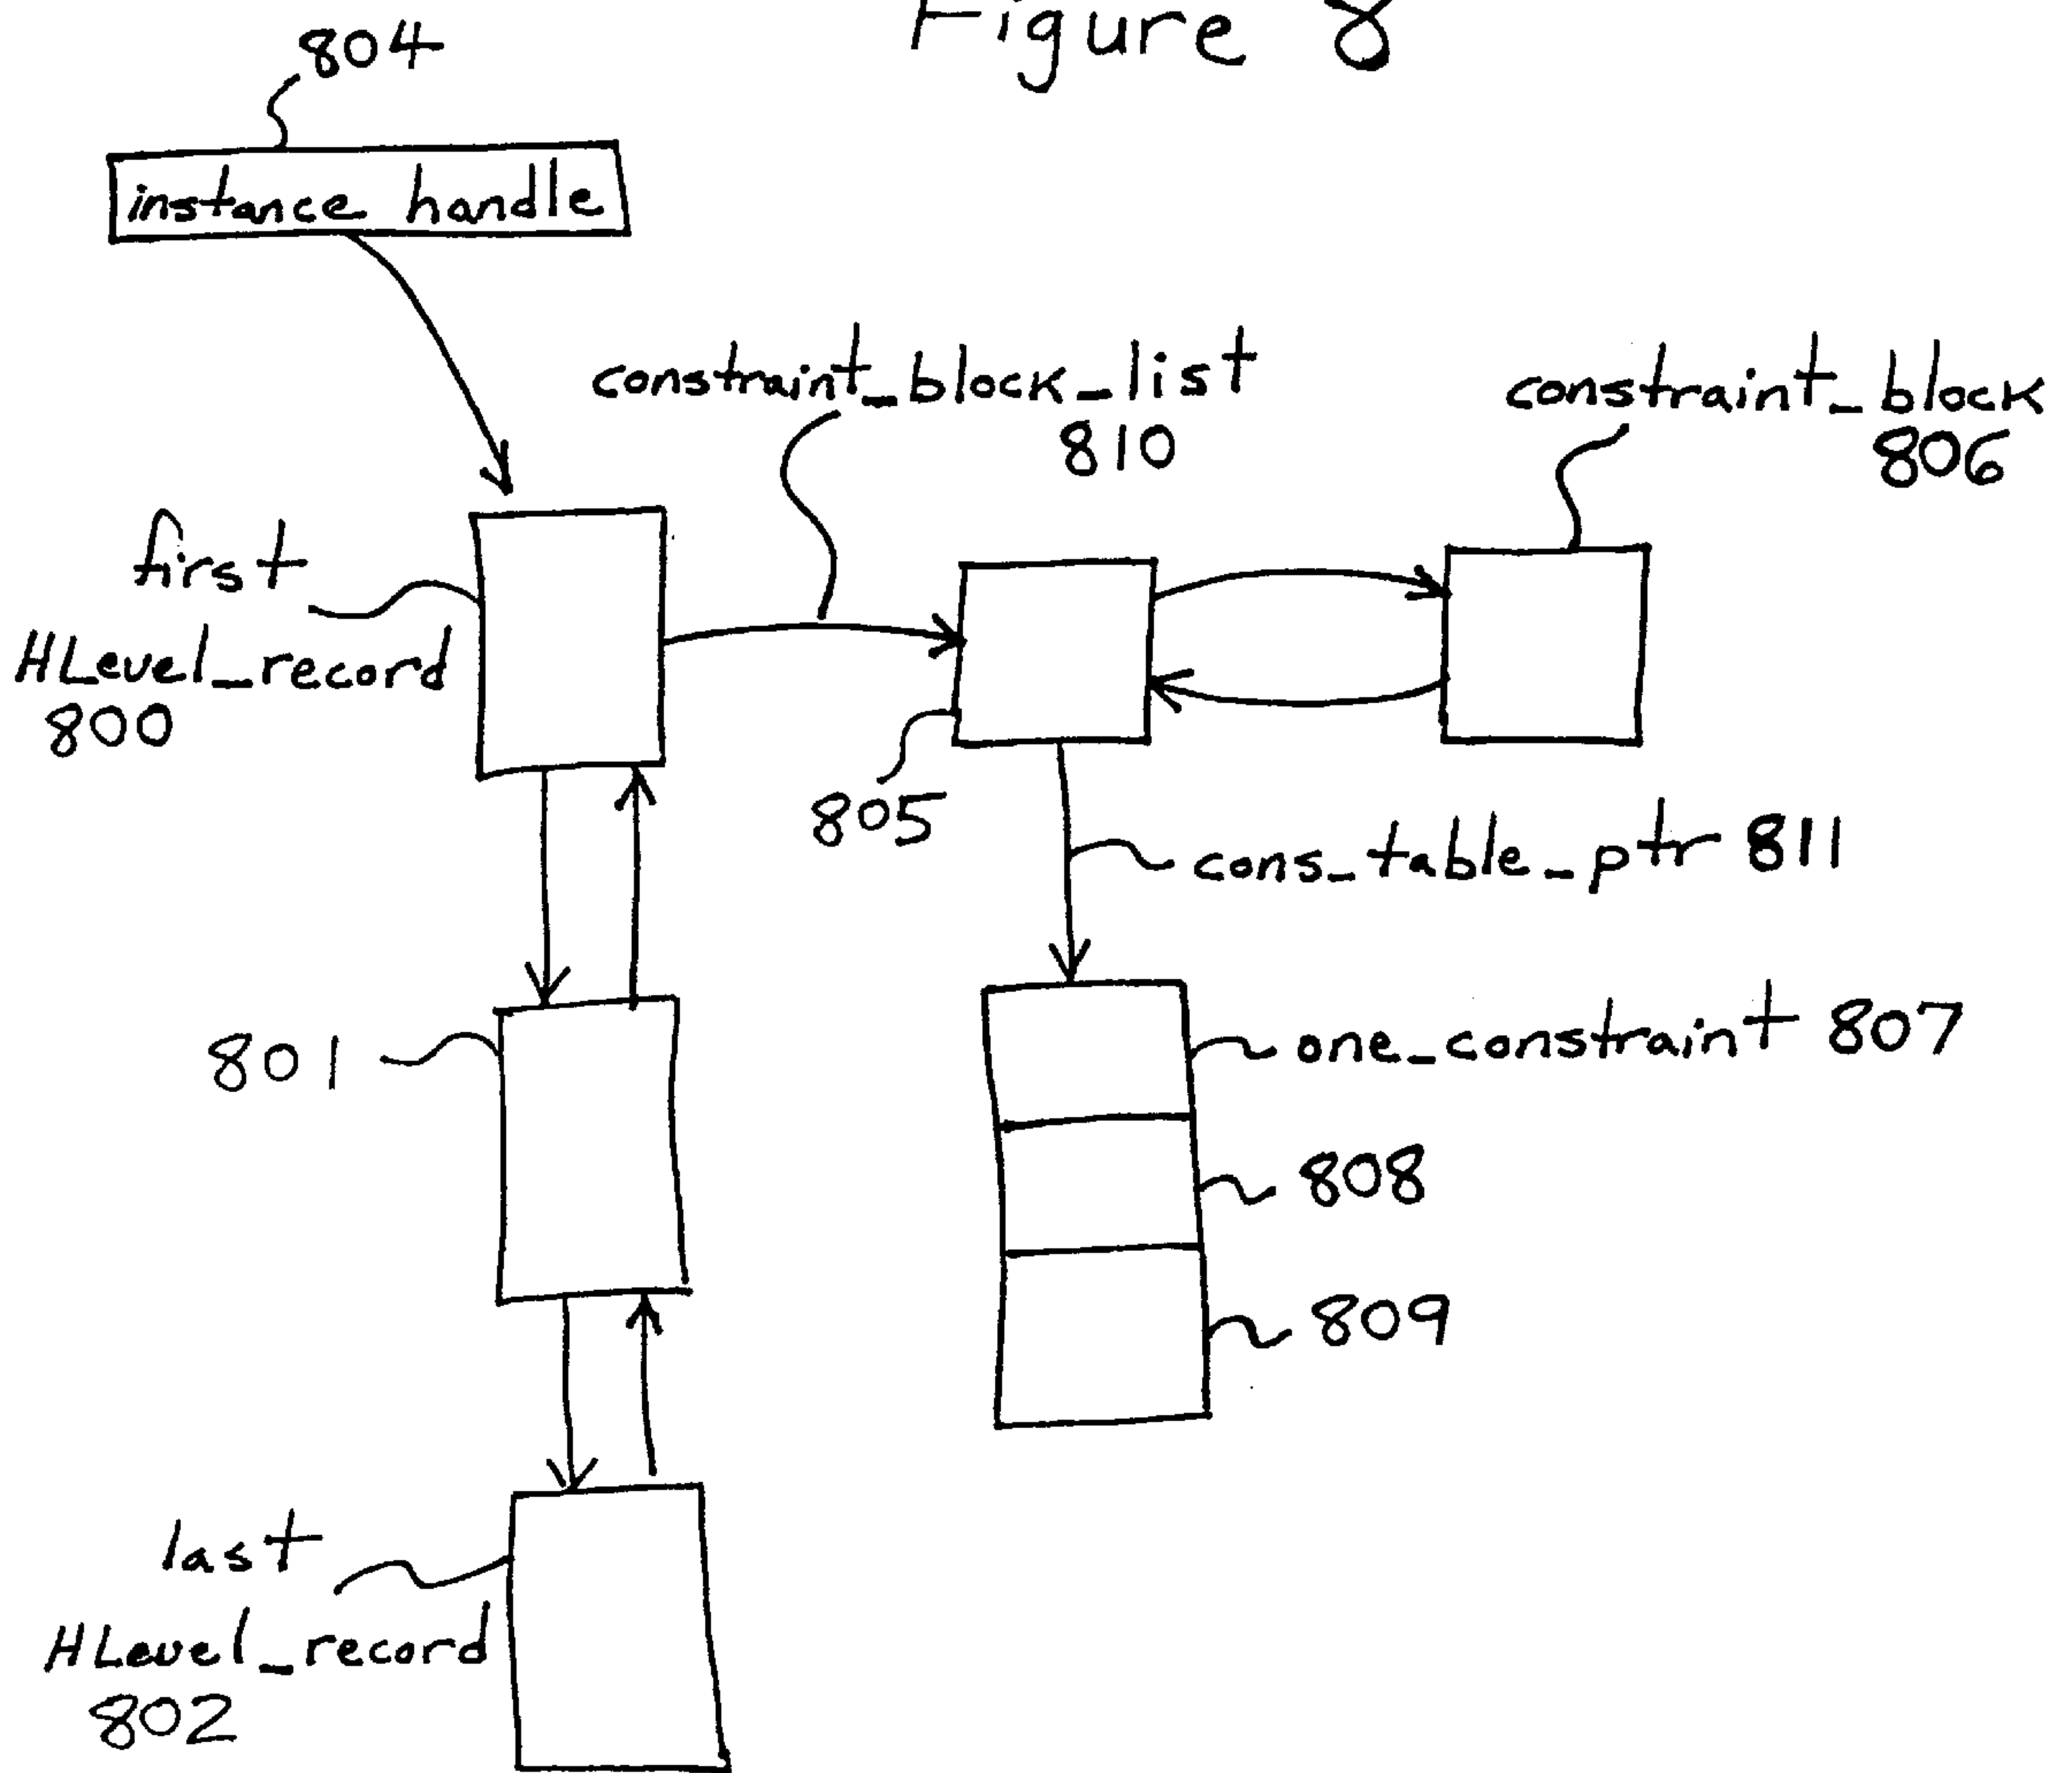 Figure 8
804
instance handle
constraint_block_list
810
constraint_block
806
first
HLevel_record
800
805
cons_table_ptr 811
801
one_constraint 807
808
809
last
HLevel_record
802